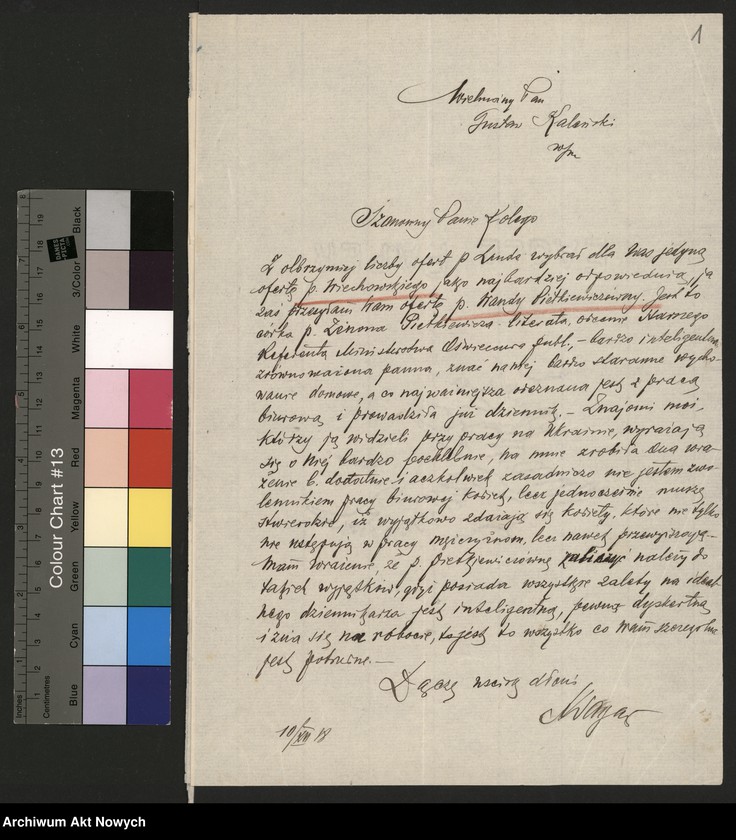 1
Wielmożny Pan
Gustaw Kaleński
wm
Szanowny Panie Kolego
Z olbrzymiej liczby ofert p Landa wybrał dla Was jedyną
ofertę p. Wiechowskiego jako najbardziej odpowiednią, ja
zaś przesyłam Wam ofertę p. Wandy Pietkiewiczówny. Jest to
córka p. Zenona Pietkiewicza literata, obecnie starszego
Referenta Ministerstwa Oświecenia publ., – bardzo inteligentna,
zrównoważona panna, znać na niej bardzo staranne wycho-
wanie domowe, a co najważniejsza obeznana jest z pracą
biurową i prowadziła już dziennik. – Znajomi moi,
którzy ją widzieli przy pracy na Ukrainie, wyrażają
się o niej bardzo pochlebnie, na mnie zrobiła ona wra-
żenie b. dodatnie i aczkolwiek zasadniczo nie jestem zwo-
lennikiem pracy biurowej kobiet, lecz jednocześnie muszę
stwierdzić, iż wyjątkowo zdarzają się kobiety, które nie tylko
nie ustępują w pracy mężczyznom, lecz nawet przewyższają. –
Mam wrażenie, że p. Pietkiewiczównę zaliczyć należy do
takich wyjątków, gdyż posiada wszystkie zalety na ideal-
nego dziennikarza jest inteligentną, pewną dyskretną
i zna się na robocie, to jest to wszystko co Wam szczególnie
jest potrzebne. –
Łączę uścisk dłoni
10/XII 18
Colour Chart #13
Blue
Cyan
Green
Yellow
Red
Magenta
White
3/Color
Black
Inches
Centimetres
DANES
PICTA
Archiwum Akt Nowych